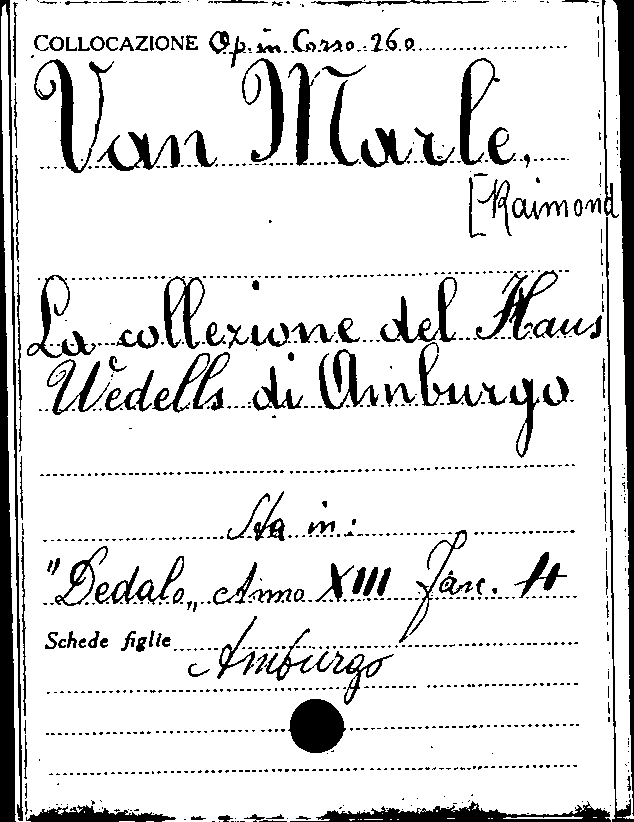 COLLOCAZIONE Op. in Corso 260
Van Marle,
[Raimond
La collezione del Haus
Wedells di Amburgo
Sta in:
"Dedalo„ Anno XIII Fasc.
Schede figlie
Amburgo